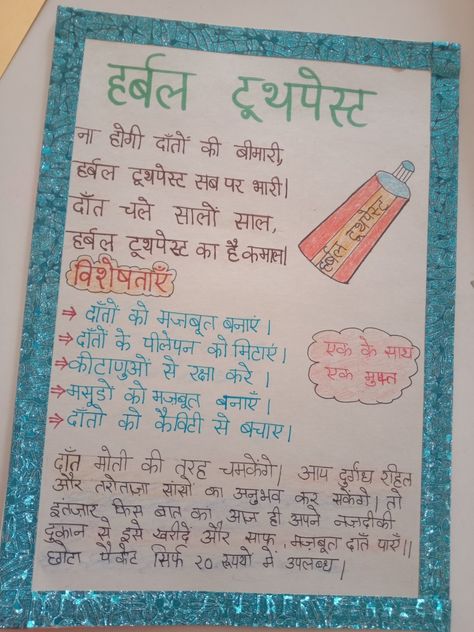 हर्बल टूथपेस्ट
ना होगी दाँतों की बीमारी,
हर्बल टूथपेस्ट सब पर भारी।
दाँत चले सालों साल,
हर्बल टूथपेस्ट का है कमाल।
हर्बल टूथपेस्ट
विशेषताएँ
⇒ दाँतों को मजबूत बनाएं।
⇒ दाँतों के पीलेपन को मिटाएं।
⇒ कीटाणुओं से रक्षा करे।
⇒ मसूडों को मजबूत बनाएं।
⇒ दाँतों को कैविटी से बचाए।
एक के साथ
एक मुफ्त
दाँत मोती की तरह चमकेंगे। आप दुर्गंध रहित
और तरोताज़ा सांसों का अनुभव कर सकेंगे। तो
इंतजार किस बात का आज ही अपने नज़दीकी
दुकान से इसे खरीदे और साफ, मजबूत दाँत पाएँ।।
छोटा पैकेट सिर्फ २० रूपयो में उपलब्ध।